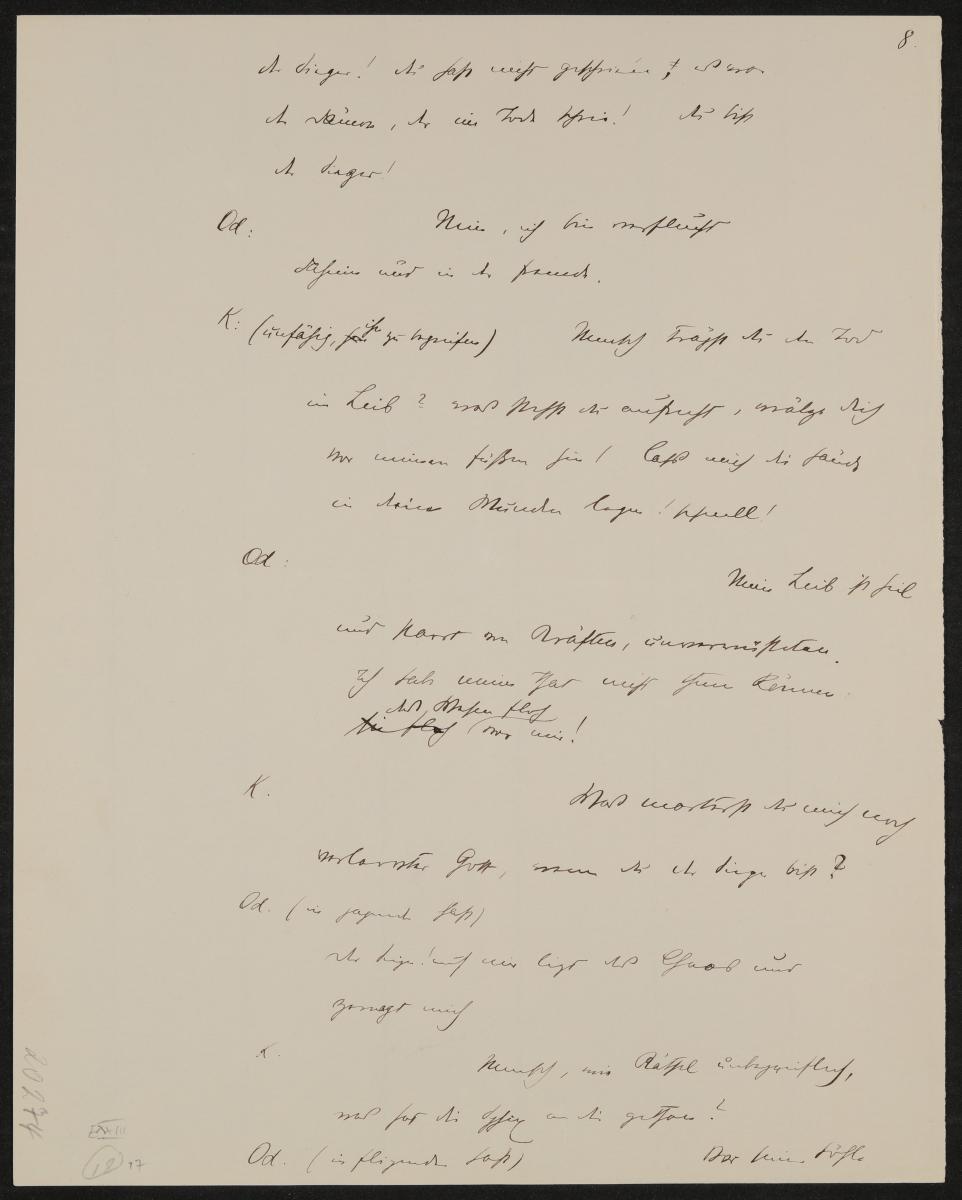 8.
der Sieger! du hast nicht geschrieen, es war
der Dämon, der im Tode schrie! Du bist
der Sieger!
Od: Nein, ich bin verflucht
daheim und in der Fremde.
K: (unfähig, ihn zu begreifen) Mensch trägst du den Tod
im Leib? was stehst du aufrecht, wälze dich
vor meinen Füßen hin! Lass mich die Hände
in deine Wunden legen! schnell!
Od: Mein Leib ist heil
und starrt von Kräften, unverwüsteten.
Ich hab meine That nicht thun können
das Wesen floh
sie floh vor mir!
K. Was marterst du mich noch
verlarvter Gott, wenn du der Sieger bist?
Od. (in jagender Hast)
der Sieger! auf mir liegt das Chaos und
zernagt mich
K. Mensch, wie Rätsel unbegreiflich,
was hat die Sphinx an dir gethan?
Od. (in fliegender Hast) Vor seiner Höhle